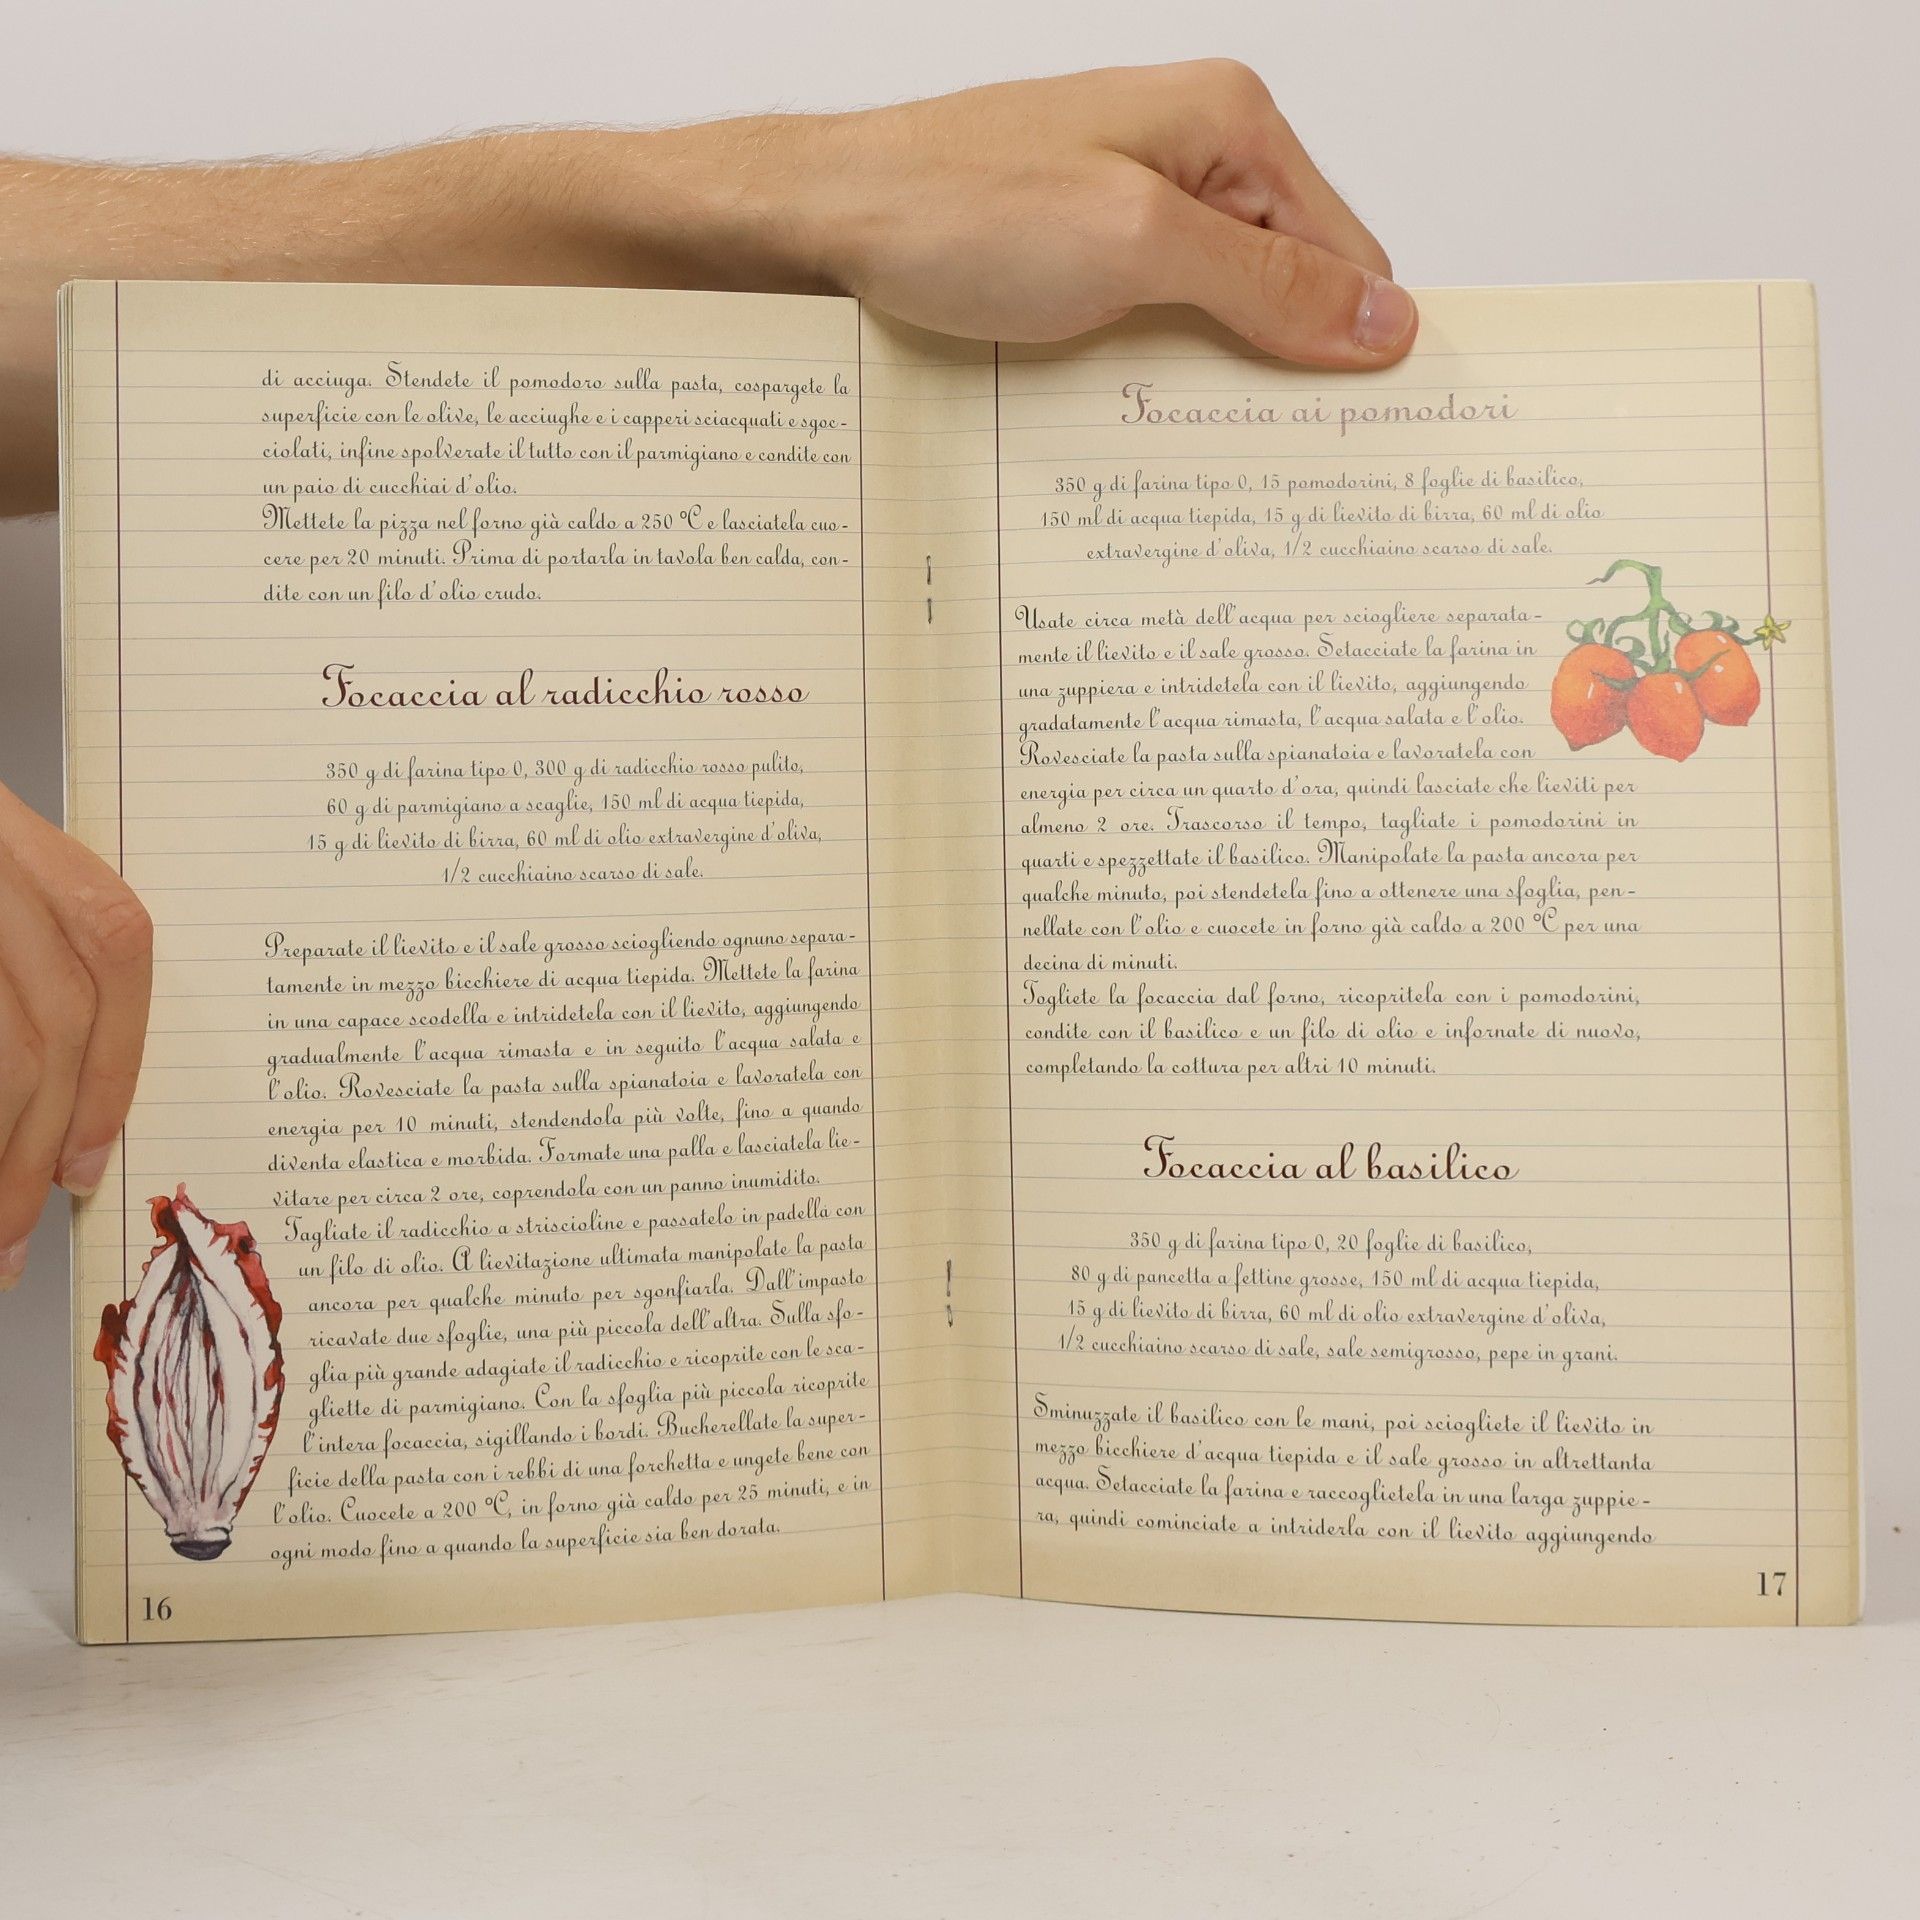 di acciuga. Stendete il pomodoro sulla pasta, cospargete la
superficie con le olive, le acciughe e i capperi sciacquati e sgoc-
ciolati, infine spolverate il tutto con il parmigiano e condite con
un paio di cucchiai d'olio.
Mettete la pizza nel forno già caldo a 250 °C e lasciatela cuo-
cere per 20 minuti. Prima di portarla in tavola ben calda, con-
dite con un filo d'olio crudo.
Focaccia al radicchio rosso
350 g di farina tipo 0, 300 g di radicchio rosso pulito,
60 g di parmigiano a scaglie, 150 ml di acqua tiepida,
15 g di lievito di birra, 60 ml di olio extravergine d'oliva,
1/2 cucchiaino scarso di sale.
Preparate il lievito e il sale grosso sciogliendo ognuno separa-
tamente in mezzo bicchiere di acqua tiepida. Mettete la farina
in una capace scodella e intridetela con il lievito, aggiungendo
gradualmente l'acqua rimasta e in seguito l'acqua salata e
l'olio. Rovesciate la pasta sulla spianatoia e lavoratela con
energia per 10 minuti, stendendola più volte, fino a quando
diventa elastica e morbida. Formate una palla e lasciatela lie-
vitare per circa 2 ore, coprendola con un panno inumidito.
Tagliate il radicchio a striscioline e passatelo in padella con
un filo di olio. A lievitazione ultimata manipolate la pasta
ancora per qualche minuto per sgonfiarla. Dall'impasto
ricavate due sfoglie, una più piccola dell'altra. Sulla sfo-
glia più grande adagiate il radicchio e ricoprite con le sca-
gliette di parmigiano. Con la sfoglia più piccola ricoprite
l'intera focaccia, sigillando i bordi. Bucherellate la super-
ficie della pasta con i rebbi di una forchetta e ungete bene con
l'olio. Cuocete a 200 °C, in forno già caldo per 25 minuti, e in
ogni modo fino a quando la superficie sia ben dorata.
16
Focaccia ai pomodori
350 g di farina tipo 0, 15 pomodorini, 8 foglie di basilico,
150 ml di acqua tiepida, 15 g di lievito di birra, 60 ml di olio
extravergine d'oliva, 1/2 cucchiaino scarso di sale.
Usate circa metà dell'acqua per sciogliere separata-
mente il lievito e il sale grosso. Setacciate la farina in
una zuppiera e intridetela con il lievito, aggiungendo
gradatamente l'acqua rimasta, l'acqua salata e l'olio.
Rovesciate la pasta sulla spianatoia e lavoratela con
energia per circa un quarto d'ora, quindi lasciate che lieviti per
almeno 2 ore. Trascorso il tempo, tagliate i pomodorini in
quarti e spezzettate il basilico. Manipolate la pasta ancora per
qualche minuto, poi stendetela fino a ottenere una sfoglia, pen-
nellate con l'olio e cuocete in forno già caldo a 200 °C per una
decina di minuti.
Togliete la focaccia dal forno, ricopritela con i pomodorini,
condite con il basilico e un filo di olio e infornate di nuovo,
completando la cottura per altri 10 minuti.
Focaccia al basilico
350 g di farina tipo 0, 20 foglie di basilico,
80 g di pancetta a fettine grosse, 150 ml di acqua tiepida,
15 g di lievito di birra, 60 ml di olio extravergine d'oliva,
1/2 cucchiaino scarso di sale, sale semigrosso, pepe in grani.
Sminuzzate il basilico con le mani, poi sciogliete il lievito in
mezzo bicchiere d'acqua tiepida e il sale grosso in altrettanta
acqua. Setacciate la farina e raccoglietela in una larga zuppie-
ra, quindi cominciate a intriderla con il lievito aggiungendo
17